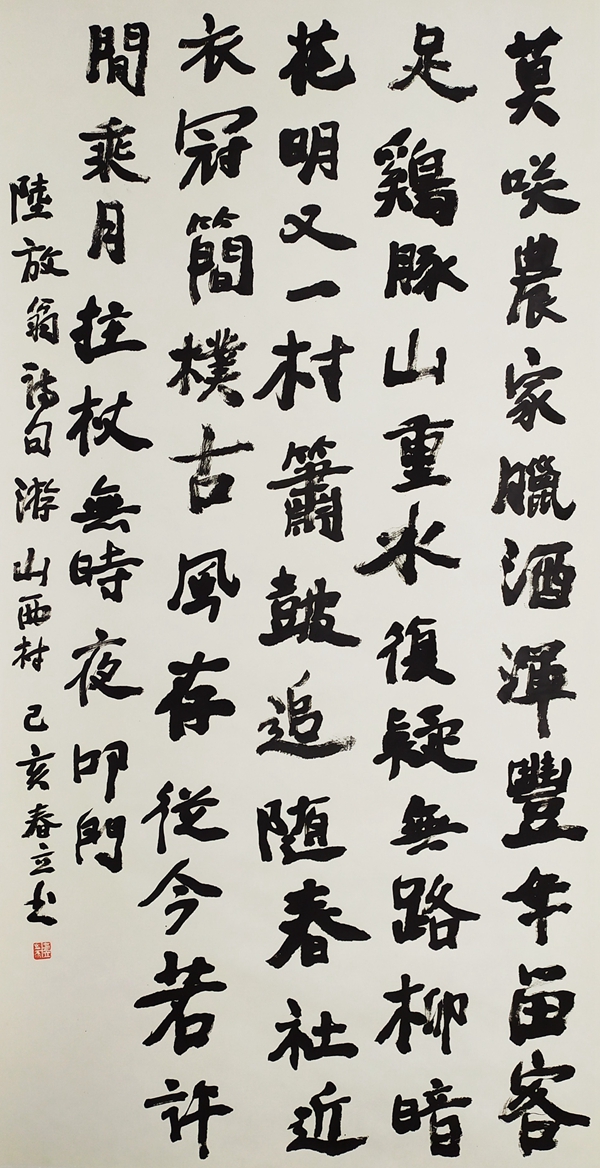 莫咲農家臘酒渾豐年留客
足鷄豚山重水復疑無路柳暗
花明又一村簫鼓追随春社近
衣冠簡樸古風存從今若許
閒乘月拄杖無時夜叩門
陸放翁詩句游山西村己亥春立书